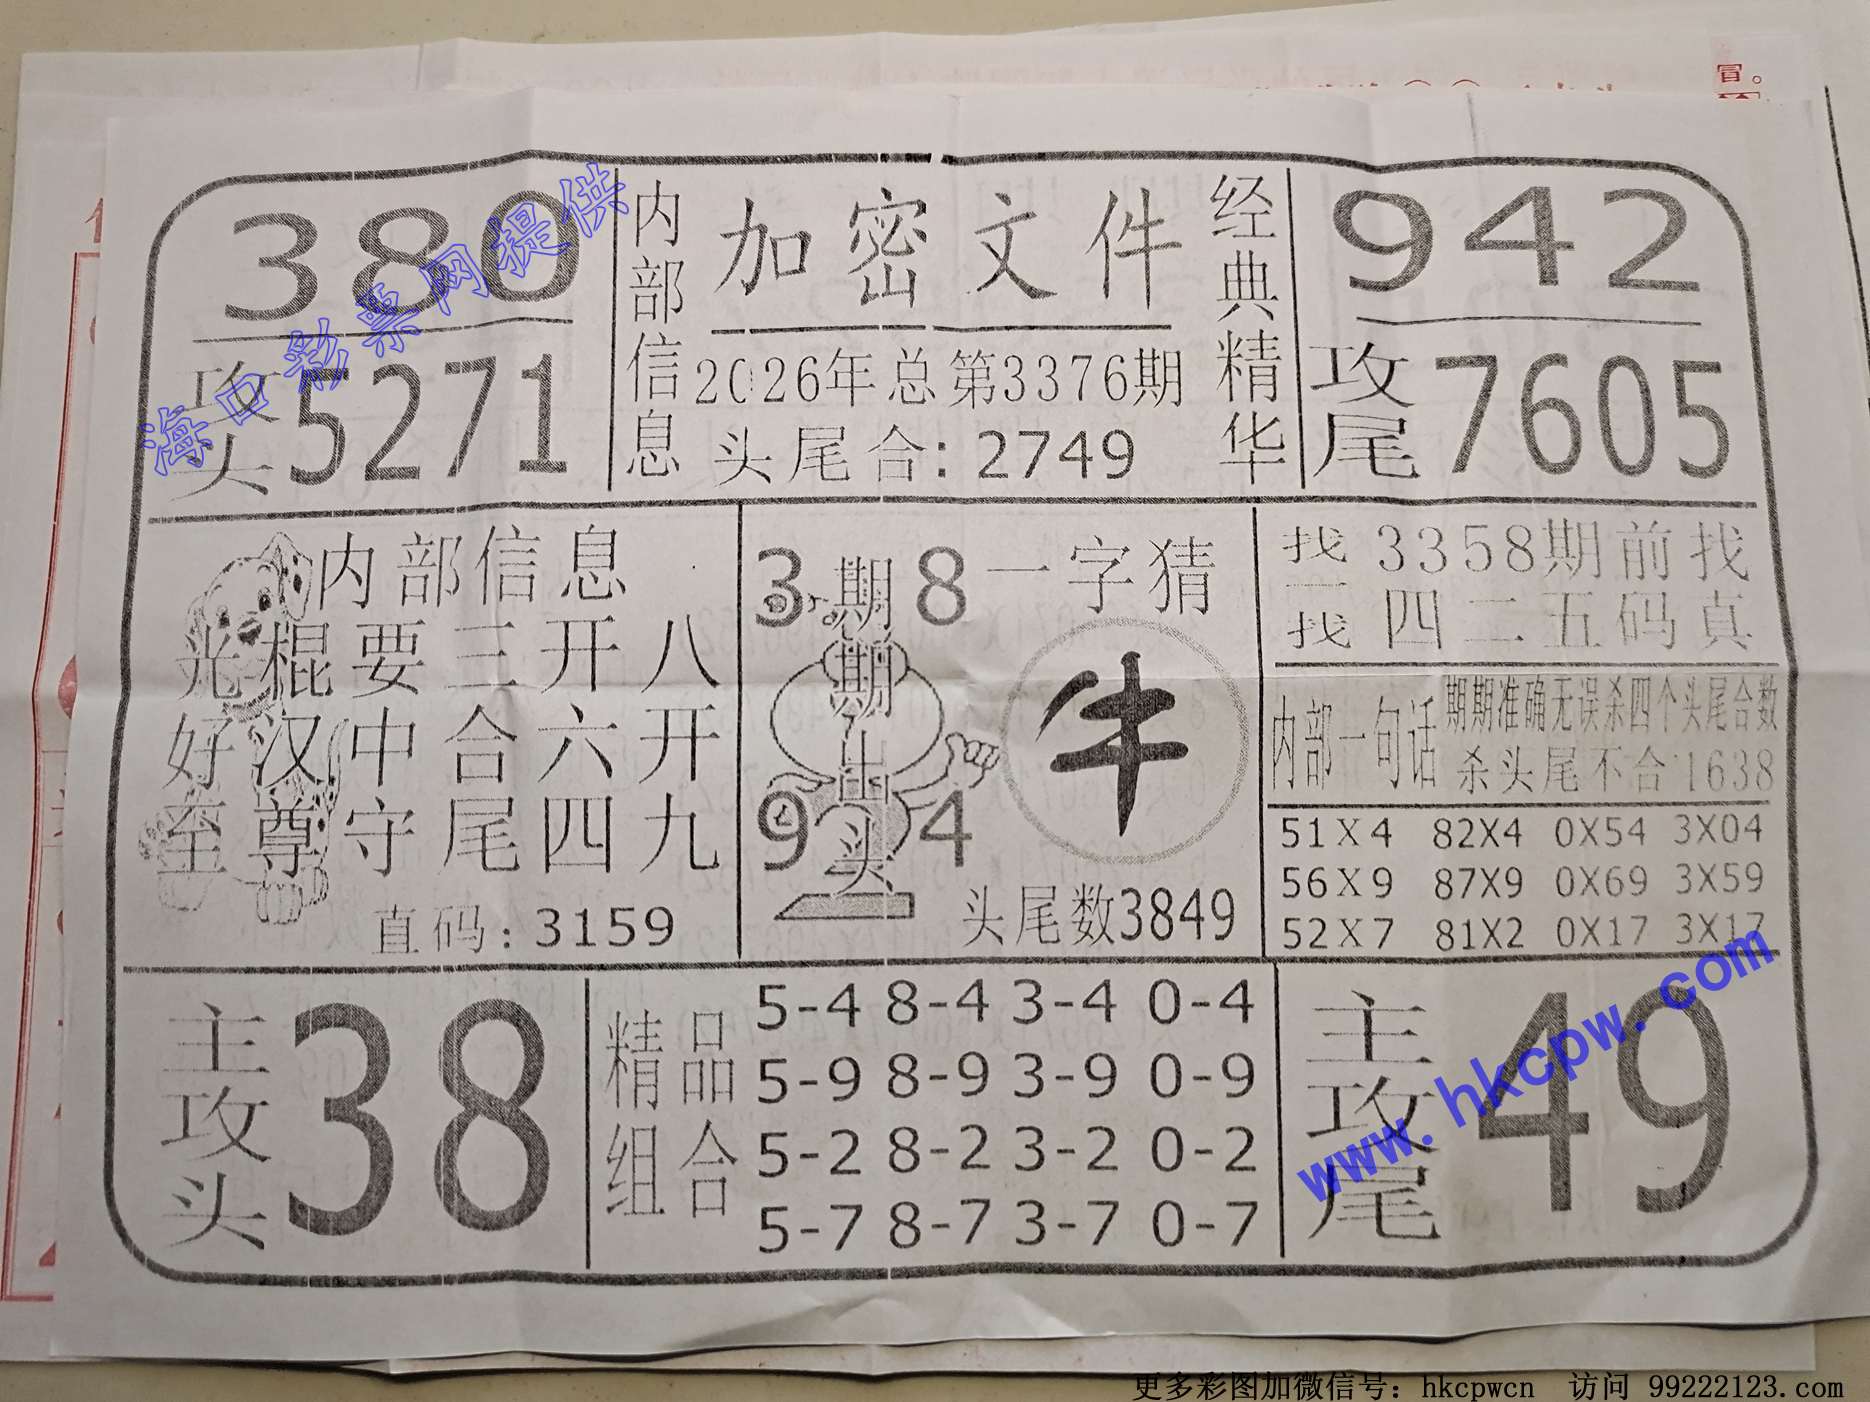 冒。
380
攻头 5271
内部信息
加密文件
2026年总第3376期
头尾合:2749
经典精华
942
攻尾 7605
海口彩票网提供
内部信息
光棍要三开八
好汉中合六开
至尊守尾四九
直码:3159
3 8
期期出头
9 4
一字猜
牛
头尾数3849
找一找
3358期前找
四二五码真
内部一句话
期期准确无误杀四个头尾合数
杀头尾不合1638
51X4 82X4 0X54 3X04
56X9 87X9 0X69 3X59
52X7 81X2 0X17 3X17
主攻头 38
精品组合
5-4 8-4 3-4 0-4
5-9 8-9 3-9 0-9
5-2 8-2 3-2 0-2
5-7 8-7 3-7 0-7
主攻尾 49
www.hkcpw.com
更多彩图加微信号:hkcpwcn 访问 99222123.com